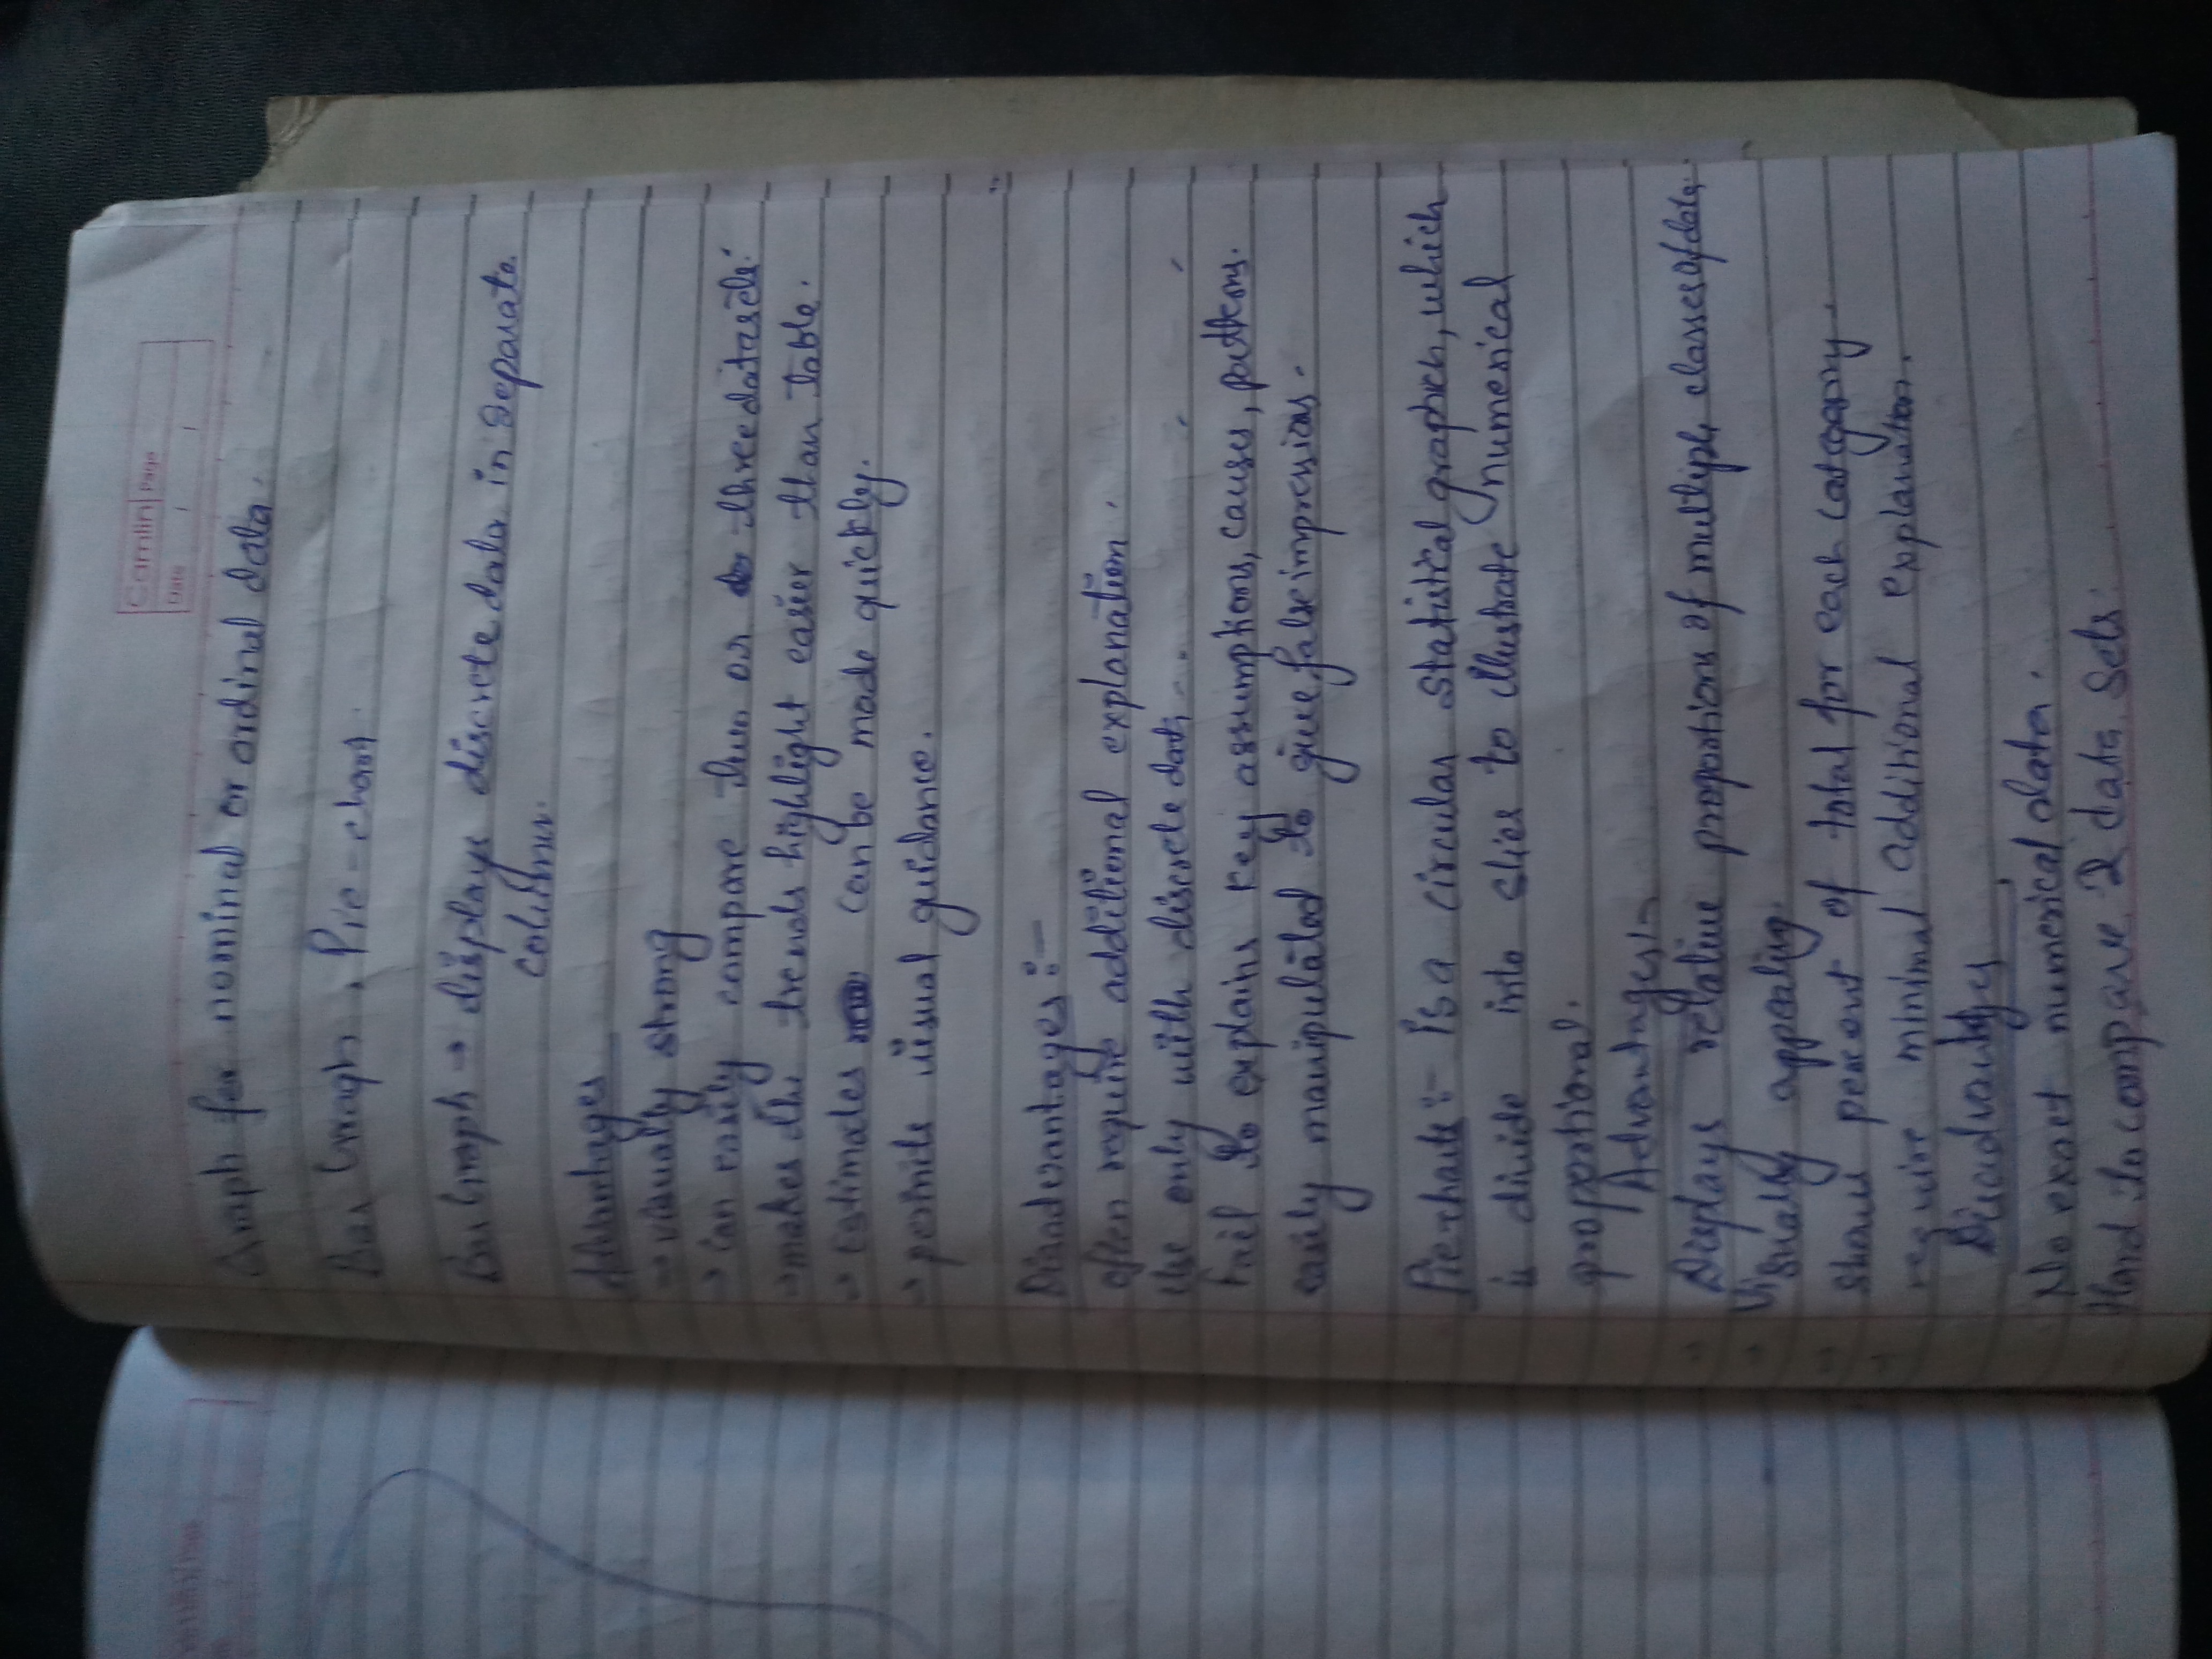 Camlin Page
Date / /
Graph for nominal or ordinal data.
Bar Graph, Pie-chart.
Bar Graph → displays discrete data in separate
column.
Advantages
→ visually strong
→ can easily compare two or three dataset.
→ makes the trends highlight easier than table.
→ estimates can be made quickly.
→ permits visual guidance.
Disadvantages :-
often require additional explanation.
Use only with discrete data.
Fail to explain key assumptions, causes, patterns.
easily manipulated to give false impressions.
Piechart :- Is a circular statistical graphch, which
is divide into slies to illustrate numerical
proppotional.
Advantages :-
Displays relative proportions of multiple classes of data.
Visually appealing.
shows percent of total for each catogary
require minimal additional explanation.
Disadvantges
No exact numerical data.
Hard to compare 2 data sets.